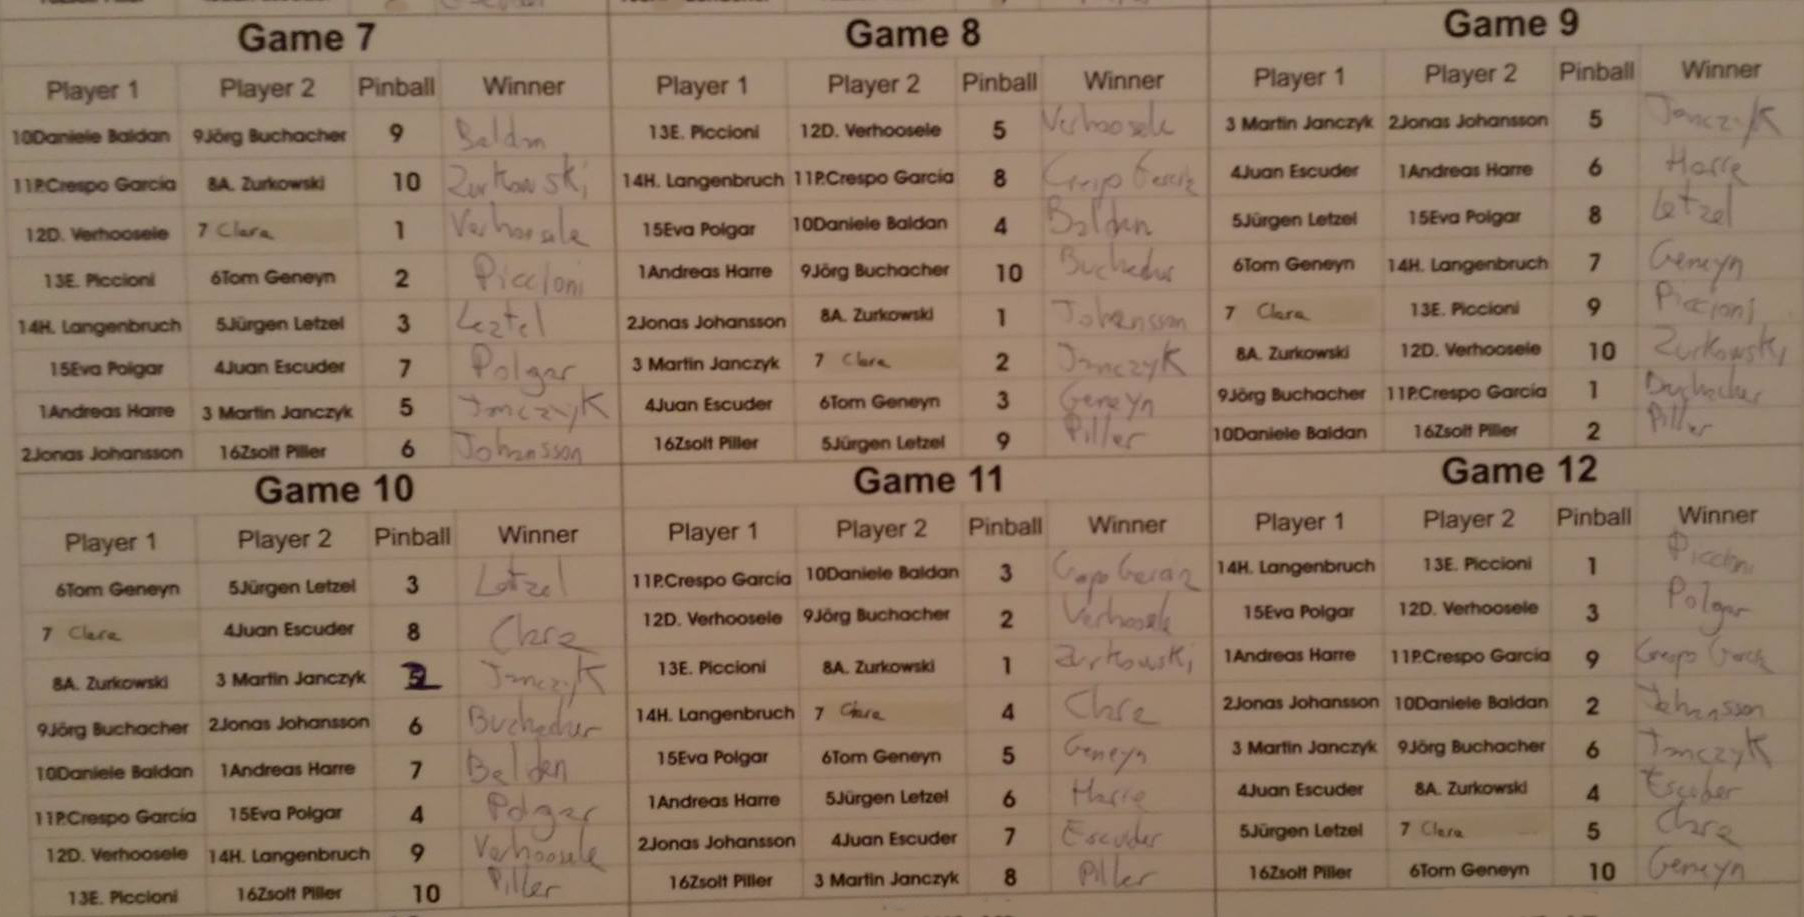 Game 7
Player 1 Player 2 Pinball Winner
10Daniele Baldan 9Jörg Buchacher 9 Baldan
11P.Crespo García 8A. Zurkowski 10 Zurkowski
12D. Verhoosele 7 Clara 1 Verhoosele
13E. Piccioni 6Tom Geneyn 2 Piccioni
14H. Langenbruch 5Jürgen Letzel 3 Leztel
15Eva Polgar 4Juan Escuder 7 Polgar
1Andreas Harre 3 Martin Janczyk 5 Janczyk
2Jonas Johansson 16Zsolt Piller 6 Johansson
Game 8
Player 1 Player 2 Pinball Winner
13E. Piccioni 12D. Verhoosele 5 Verhoosele
14H. Langenbruch 11P.Crespo García 8 Crespo Garcia
15Eva Polgar 10Daniele Baldan 4 Baldan
1Andreas Harre 9Jörg Buchacher 10
2Jonas Johansson 8A. Zurkowski 1 Johansson
3 Martin Janczyk 7 Clara 2 Janczyk
4Juan Escuder 6Tom Geneyn 3 Geneyn
16Zsolt Piller 5Jürgen Letzel 9 Piller
Game 9
Player 1 Player 2 Pinball Winner
3 Martin Janczyk 2Jonas Johansson 5 Janczyk
4Juan Escuder 1Andreas Harre 6 Harre
5Jürgen Letzel 15Eva Polgar 8 Letzel
6Tom Geneyn 14H. Langenbruch 7 Geneyn
7 Clara 13E. Piccioni 9 Piccioni
8A. Zurkowski 12D. Verhoosele 10 Zurkowski
9Jörg Buchacher 11P.Crespo García 1
10Daniele Baldan 16Zsolt Piller 2 Piller
Game 10
Player 1 Player 2 Pinball Winner
6Tom Geneyn 5Jürgen Letzel 3 Letzel
7 Clara 4Juan Escuder 8 Clara
8A. Zurkowski 3 Martin Janczyk Janczyk
9Jörg Buchacher 2Jonas Johansson 6
10Daniele Baldan 1Andreas Harre 7 Baldan
11P.Crespo García 15Eva Polgar 4 Polgar
12D. Verhoosele 14H. Langenbruch 9 Verhoosele
13E. Piccioni 16Zsolt Piller 10 Piller
Game 11
Player 1 Player 2 Pinball Winner
11P.Crespo García 10Daniele Baldan 3
12D. Verhoosele 9Jörg Buchacher 2 Verhoosele
13E. Piccioni 8A. Zurkowski 1 Zurkowski
14H. Langenbruch 7 Clara 4 Clara
15Eva Polgar 6Tom Geneyn 5 Geneyn
1Andreas Harre 5Jürgen Letzel 6 Harre
2Jonas Johansson 4Juan Escuder 7 Escuder
16Zsolt Piller 3 Martin Janczyk 8 Piller
Game 12
Player 1 Player 2 Pinball Winner
14H. Langenbruch 13E. Piccioni 1 Piccioni
15Eva Polgar 12D. Verhoosele 3 Polgar
1Andreas Harre 11P.Crespo García 9 Crespo Garcia
2Jonas Johansson 10Daniele Baldan 2 Johansson
3 Martin Janczyk 9Jörg Buchacher 6 Janczyk
4Juan Escuder 8A. Zurkowski 4 Escuder
5Jürgen Letzel 7 Clara 5 Clara
16Zsolt Piller 6Tom Geneyn 10 Geneyn